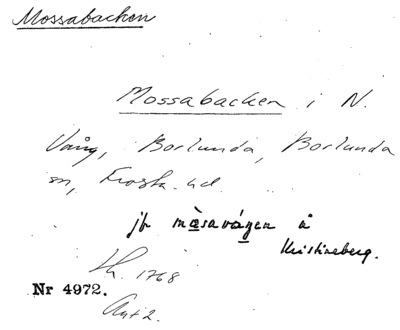 Mossabacken
Mossabacken i N.
Vång, Borlunda, Borlunda
sn, Frosta hd
jfr mæsavágen å
Kristineberg.
Lh. 1768
Nr 4972.
Akt 2.